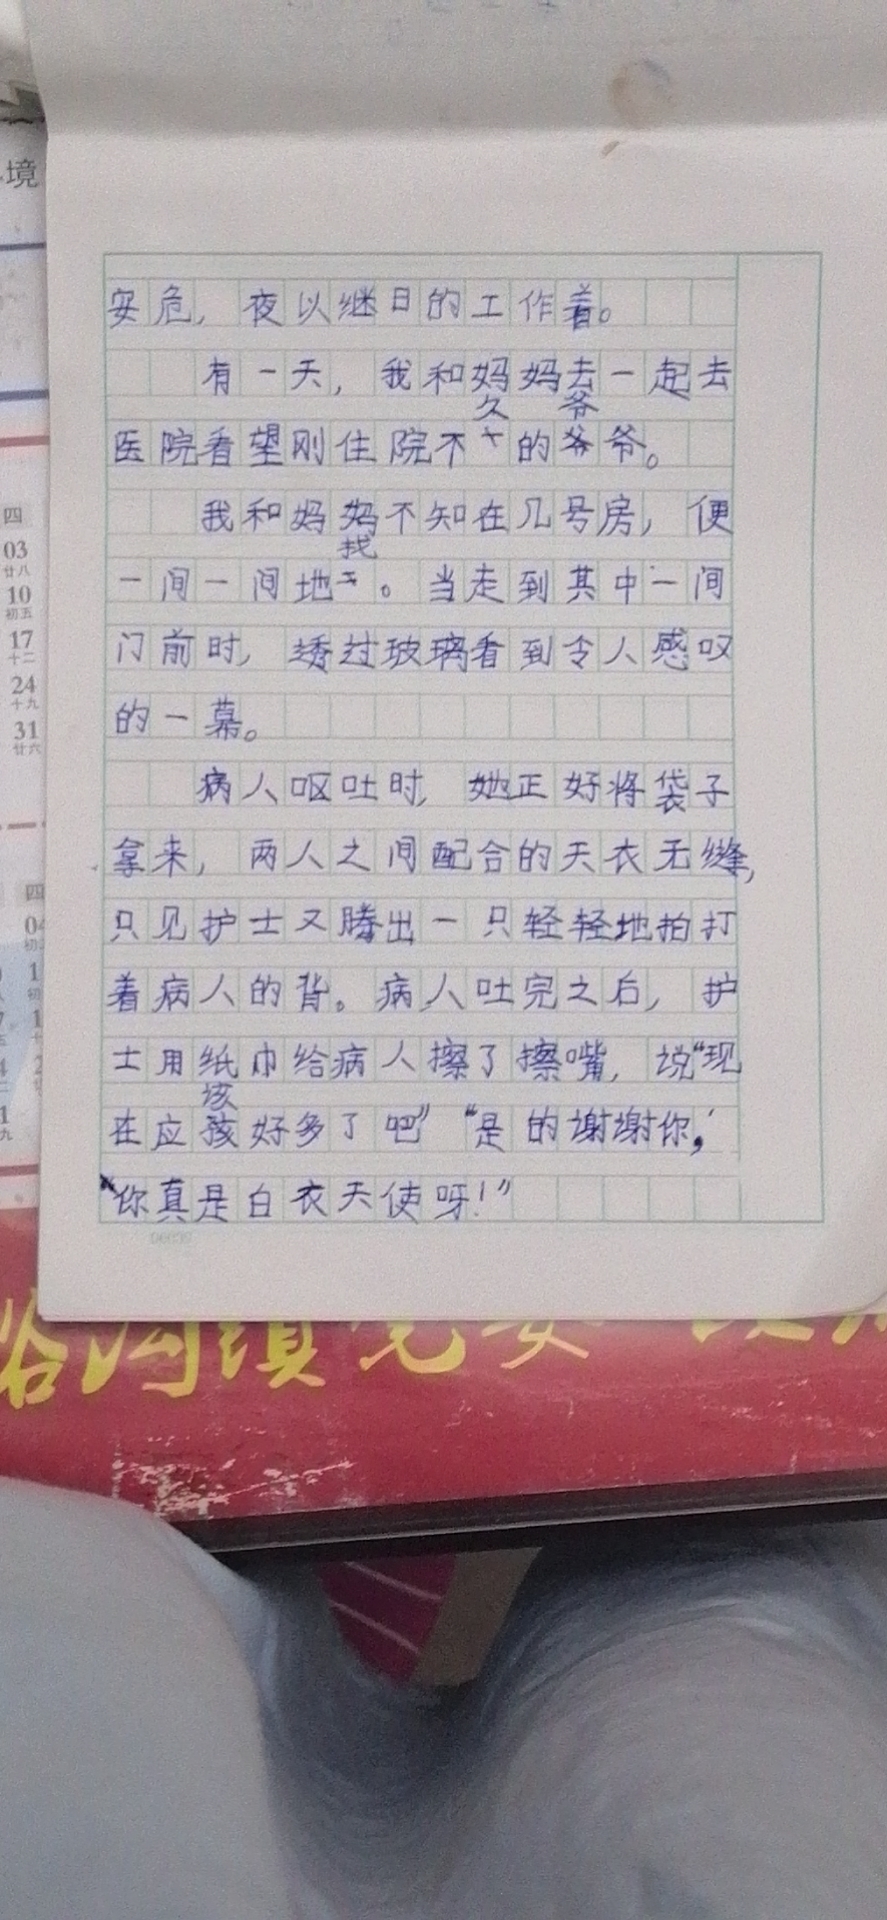 境
四
03
廿八
10
初五
17
十二
24
十九
31
廿六
四
安危，夜以继日的工作着。
有一天，我和妈妈去一起去
久 爷
医院看望刚住院不的爷爷。
我和妈妈不知在几号房，便
找
一间一间地。当走到其中一间
门前时，透过玻璃看到令人感叹
的一幕。
病人呕吐时，她正好将袋子
拿来，两人之间配合的天衣无缝，
只见护士又腾出一只轻轻地拍打
着病人的背。病人吐完之后，护
士用纸巾给病人擦了擦嘴，说“现
该
在应孩好多了吧”“是的谢谢你，
“你真是白衣天使呀！”